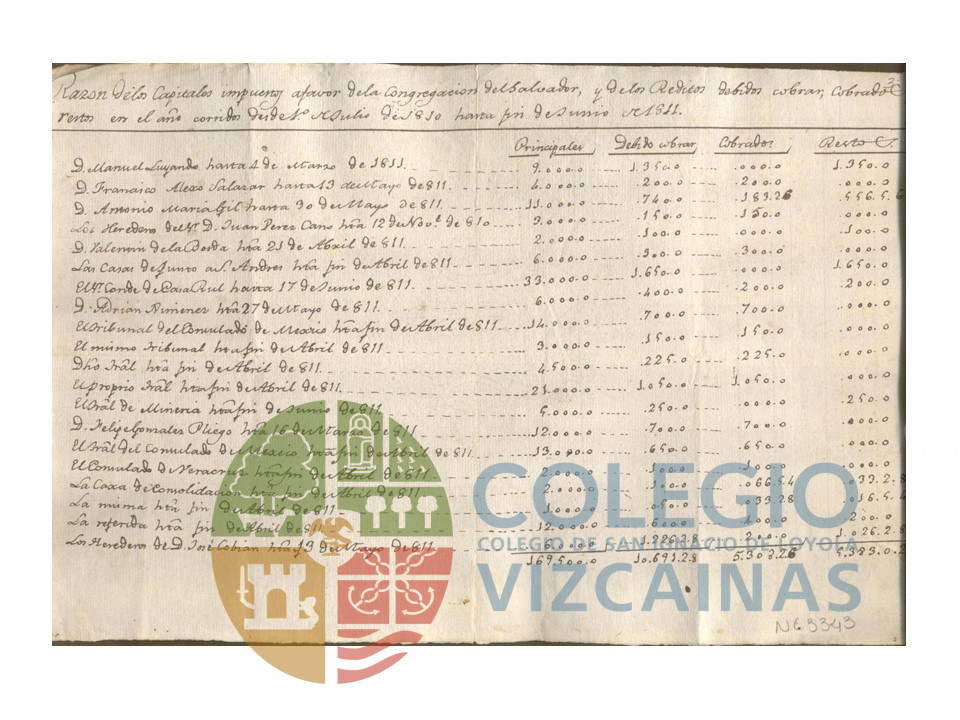 Razon de los Capitales impuestos a favor de la Congregacion del Salvador, y de los Reditos debidos cobrar, Cobrados
restos en el año corridos desde 1º de Julio de 1810 hasta fin de Junio de 1811.
Principales Debido cobrar Cobrados Resto
D. Manuel Luyando hasta 4 de Marzo de 1811. 9.000.0 1.350.0 .000.0 1.350.0
D. Francisco Alexo Salazar hasta 13 de Mayo de 811. 4.000.0 .200.0 .200.0 .000.0
D. Antonio Maria Gil hasta 30 de Mayo de 811. 11.000.0 .740.0 .183.2.6 .556.5.6
Los Herederos del Sr. D. Juan Perez Cano hta 12 de Nove. de 810 3.000.0 .150.0 .150.0 .000.0
D. Valentin de la hta 21 de Abril de 811. 2.000.0 .100.0 .000.0 .100.0
Las Casas de junto a S. Andres hta fin de Abril de 811. 6.000.0 .300.0 .300.0 .000.0
El Sr. Conde de Casa Rul hasta 17 de Junio de 811. 33.000.0 1.650.0 .000.0 1.650.0
D. Adrian Ximenez hta 27 de Mayo de 811. 6.000.0 .400.0 .200.0 .200.0
El tribunal del Consulado de Mexico hta fin de Abril de 811 14.000.0 .700.0 .700.0 .000.0
El mismo tribunal hta fin de Abril de 811. 3.000.0 .150.0 .150.0 .000.0
Dho tral. hta fin de Abril de 811. 4.500.0 .225.0 .225.0 .000.0
El proprio tral. hta fin de Abril de 811. 21.000.0 1.050.0 1.050.0 .000.0
El tral. de Mineria hta fin de Junio de 811. 5.000.0 .250.0 .000.0 .250.0
D. Felipe Gonzales Pliego hta 16 de Marzo de 811. 12.000.0 .700.0 .700.0 .000.0
El tral. del Consulado de Mexico hta fin de Abril de 811. 13.000.0 .650.0 .650.0 .000.0
El Consulado de Veracruz hta fin de Abril de 811. 2.000.0 .100.0 .100.0 .000.0
La Caxa de Consolidación hta fin de Abril de 811. 2.000.0 .100.0 .066.5.4 .033.2.8
La misma hta fin de Abril de 811. 1.000.0 .050.0 .033.2.8 .16.5.4
La referida hta fin de Abril de 811. 12.000.0 .600.0 .400.0 200.0
Los Herederos de D. José Cobian hta 13 de Mayo de 811. .026.2.8
169.500.0 10.691.2.8 5.308.2.6 5.383.0.2
COLEGIO
COLEGIO DE SAN IGNACIO DE LOYOLA
VIZCAINAS
NE 3343